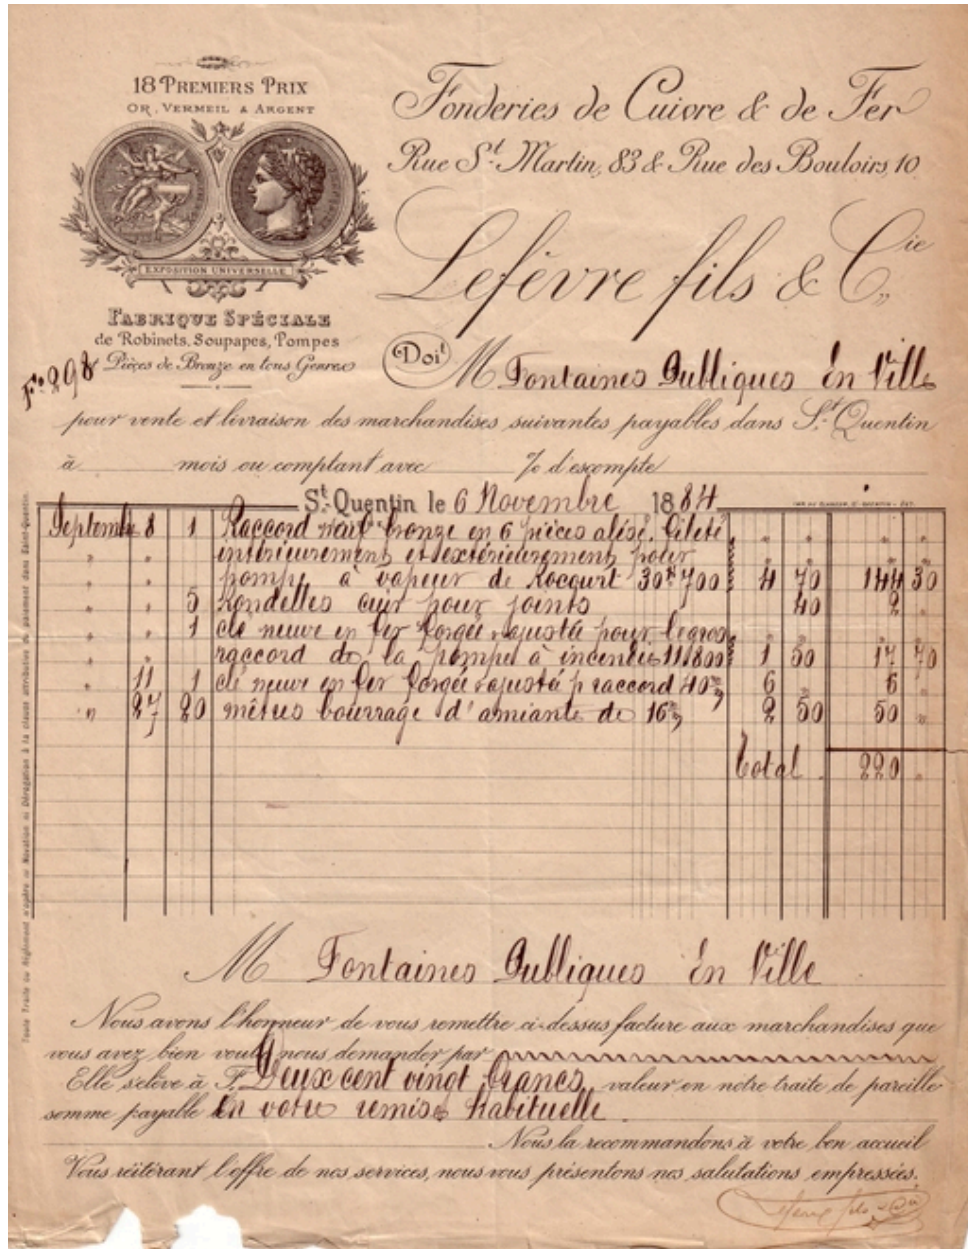 18 PREMIERS PRIX
OR, VERMEIL & ARGENT
EXPOSITION UNIVERSELLE
FABRIQUE SPÉCIALE
de Robinets, Soupapes, Pompes
Pièces de Bronze en tous Genres
Fonderies de Cuivre & de Fer
Rue St. Martin, 83 & Rue des Bouloirs, 10
Lefèvre fils & Cie
Fo. 298
Doit M Fontaines Publiques En Ville
pour vente et livraison des marchandises suivantes payables dans St. Quentin
à mois ou comptant avec % d'escompte
St. Quentin le 6 Novembre 1884
Septembre 8 1 Raccord neuf bronze en 6 pièces alésé, fileté
intérieurement et extérieurement pour
pompe à vapeur de Rocourt 30k700 4 70 144 30
5 Rondelles cuir pour joints 40 2 "
1 clé neuve en fer forgée ajustée pour le gros
raccord de la pompe à incendie 11k800 1 50 17 70
11 1 clé neuve en fer forgée ajusté p raccord 40 6 " 6 "
27 20 mètres bourrage d'amiante de 16 2 50 50 "
Total 220 "
Toute Traite ou Règlement n'opère ni Novation ni Dérogation à la clause attributive du paiement dans Saint-Quentin.
M Fontaines Publiques En Ville
Nous avons l'honneur de vous remettre ci-dessus facture aux marchandises que
vous avez bien voulu nous demander par
Elle s'élève à F. Deux cent vingt francs, valeur en notre traite de pareille
somme payable En votre remise habituelle
Nous la recommandons à votre bon accueil
Vous réitérant l'offre de nos services, nous vous présentons nos salutations empressées.
Lefèvre fils & Cie